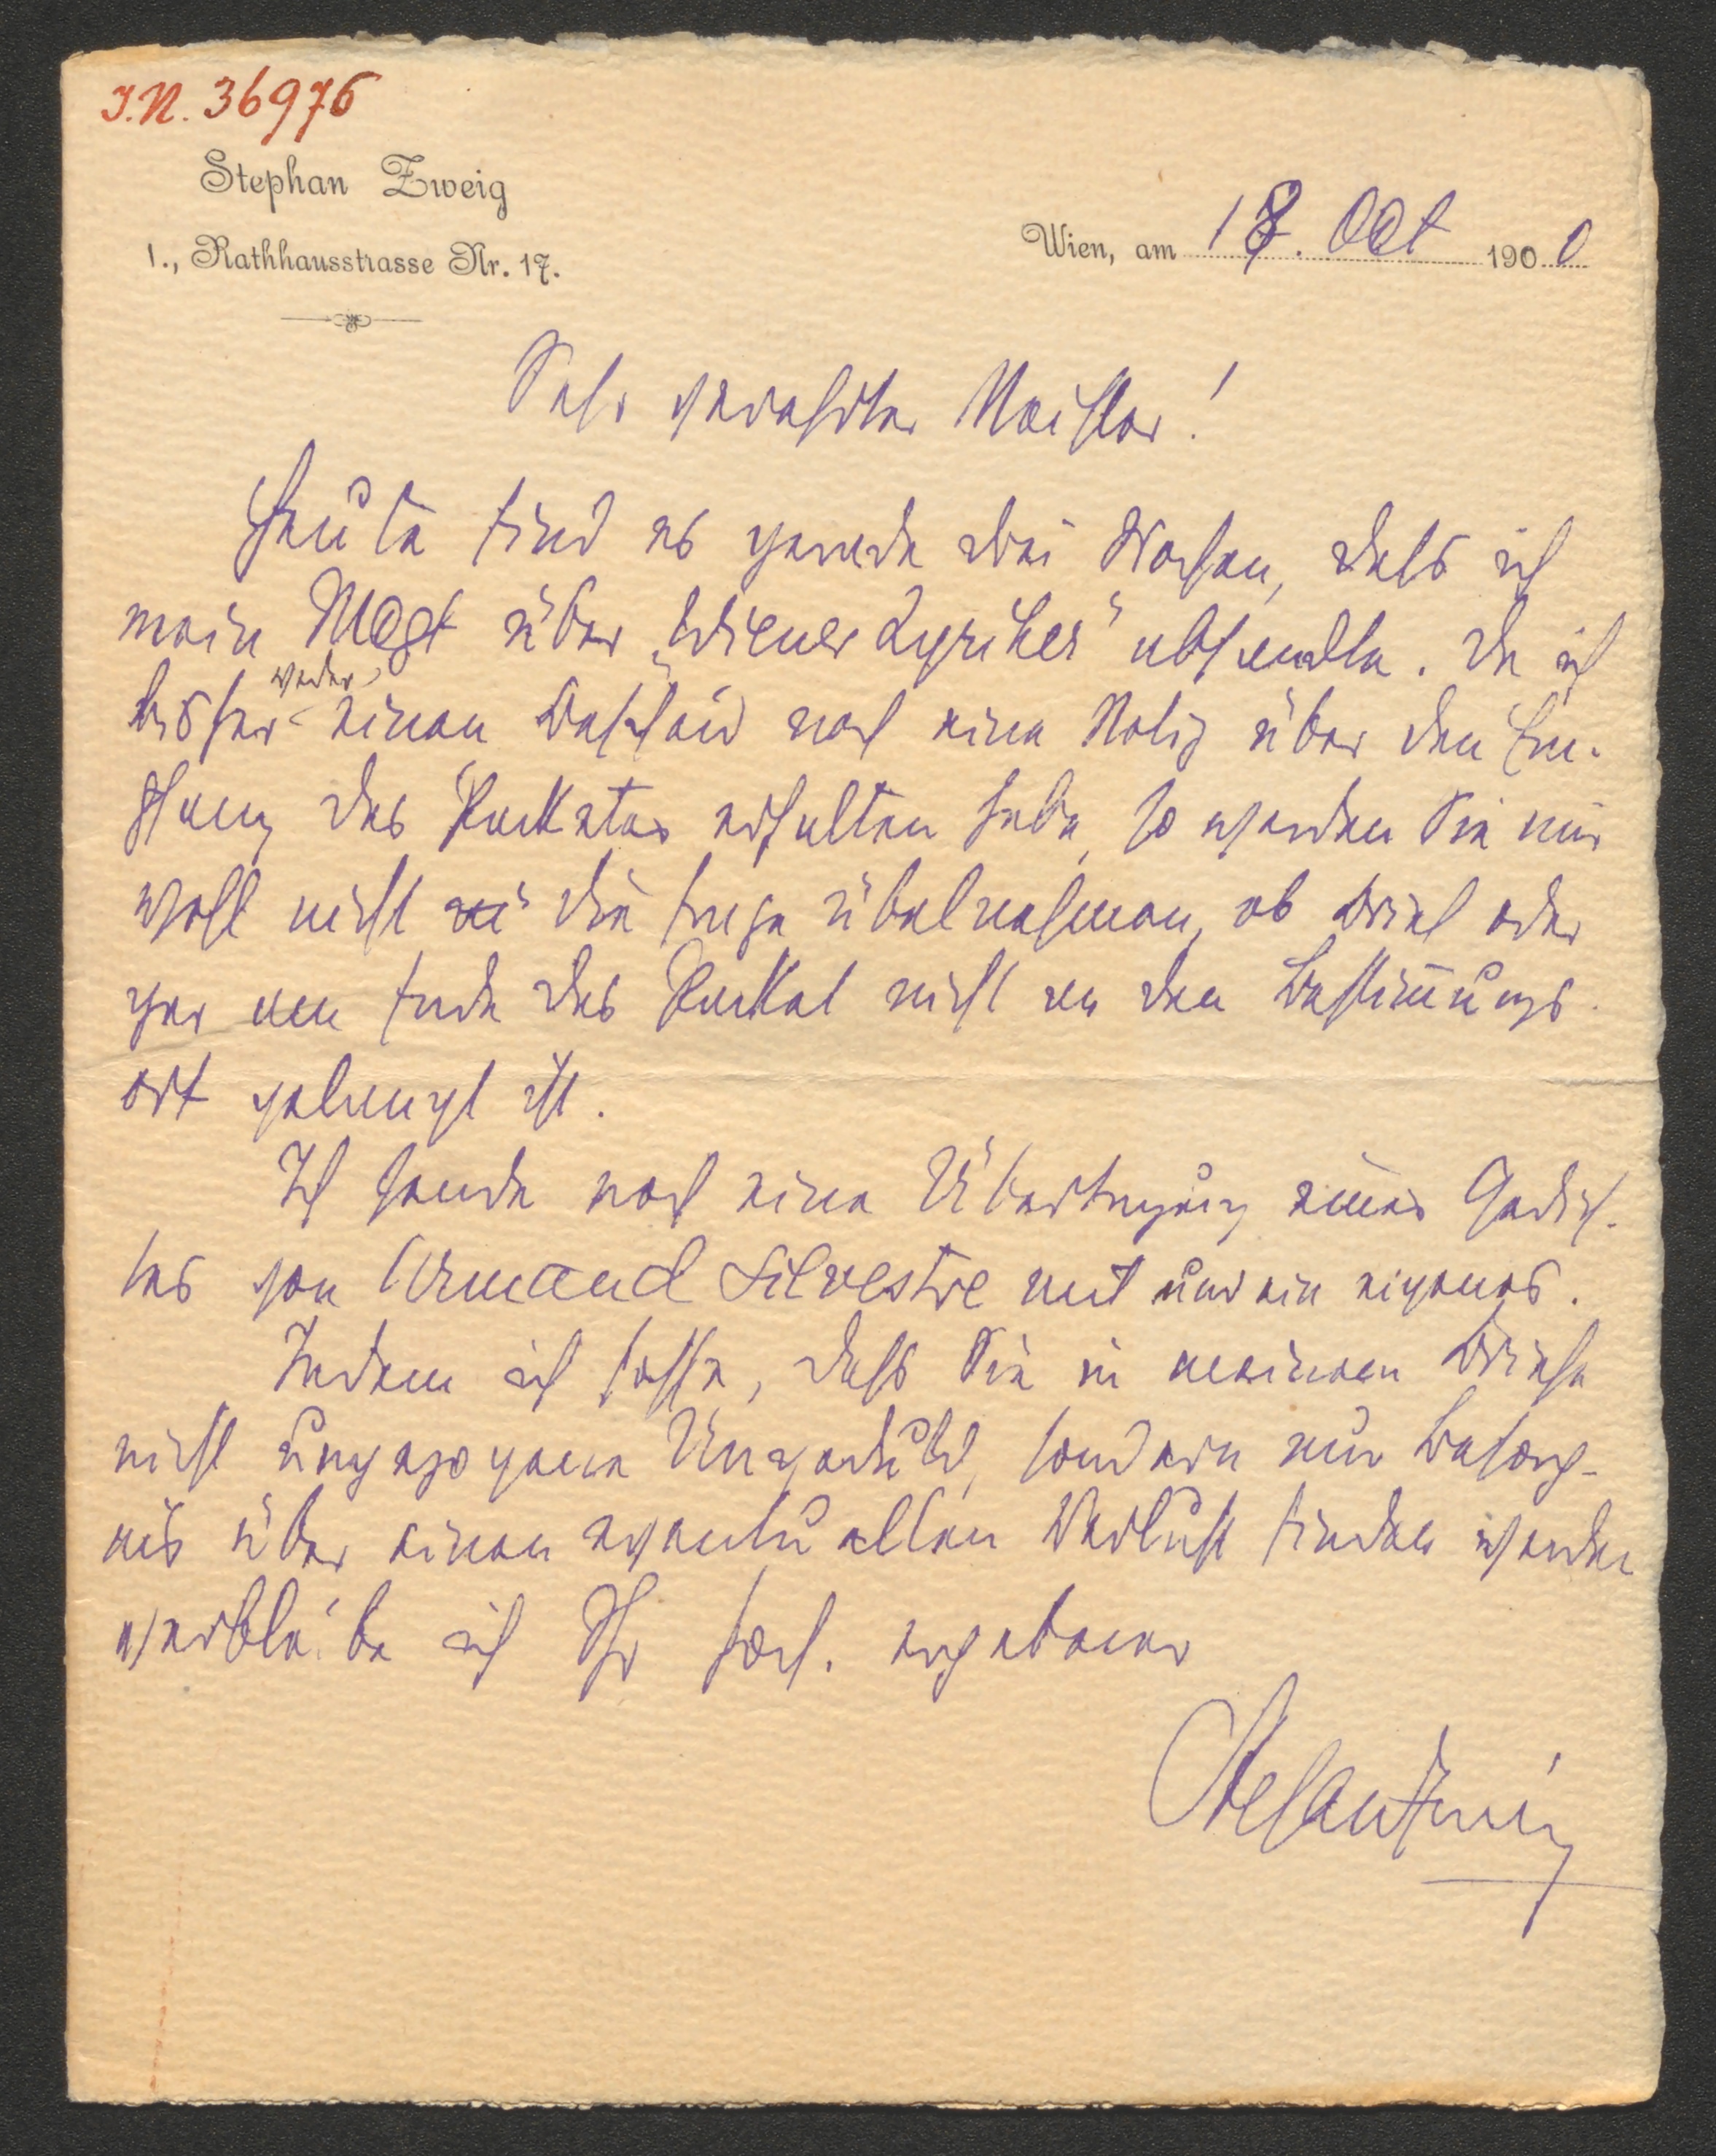 J.N. 36976
Stephan Zweig
I., Rathhausstrasse Nr. 17.
Wien, am 18. Oct 1900
Sehr verehrter Meister!
Heute sind es gerade drei Wochen, dass ich
mein Msct über „Wiener Lyriker" absandte. Da ich
bisher weder einen Bescheid noch eine Notiz über den Em-
pfang des Packetes erhalten habe, so werden Sie mir
wohl nicht die Frage übelnehmen, ob Brief oder
gar am Ende das Packet nicht an den Bestimmungs-
ort gelangt ist.
Ich sende noch eine Übertragung eines Gedich-
tes von Armand Silvestre mit und ein eigenes.
Indem ich hoffe, dass Sie in meinem Briefe
nicht ungezogene Ungeduld, sondern nur Besorg-
nis über einen eventuellen Verlust finden werden
verbleibe ich Ihr hoch. ergebener
Stefan Zweig